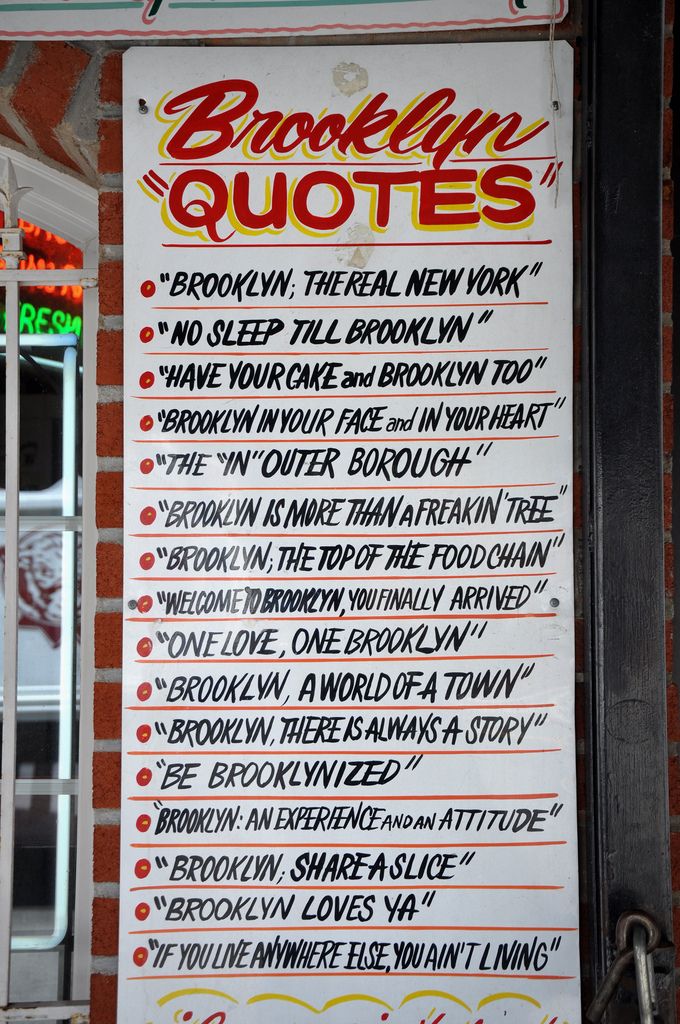 Brooklyn
"QUOTES"
"BROOKLYN; THE REAL NEW YORK"
"NO SLEEP TILL BROOKLYN"
"HAVE YOUR CAKE and BROOKLYN TOO"
"BROOKLYN IN YOUR FACE and IN YOUR HEART"
"THE "IN" OUTER BOROUGH"
"BROOKLYN IS MORE THAN A FREAKIN' TREE"
"BROOKLYN; THE TOP OF THE FOOD CHAIN"
"WELCOME TO BROOKLYN, YOU FINALLY ARRIVED"
"ONE LOVE, ONE BROOKLYN"
"BROOKLYN, A WORLD OF A TOWN"
"BROOKLYN, THERE IS ALWAYS A STORY"
"BE BROOKLYNIZED"
"BROOKLYN: AN EXPERIENCE AND AN ATTITUDE"
"BROOKLYN; SHARE A SLICE"
"BROOKLYN LOVES YA"
"IF YOU LIVE ANYWHERE ELSE, YOU AIN'T LIVING"